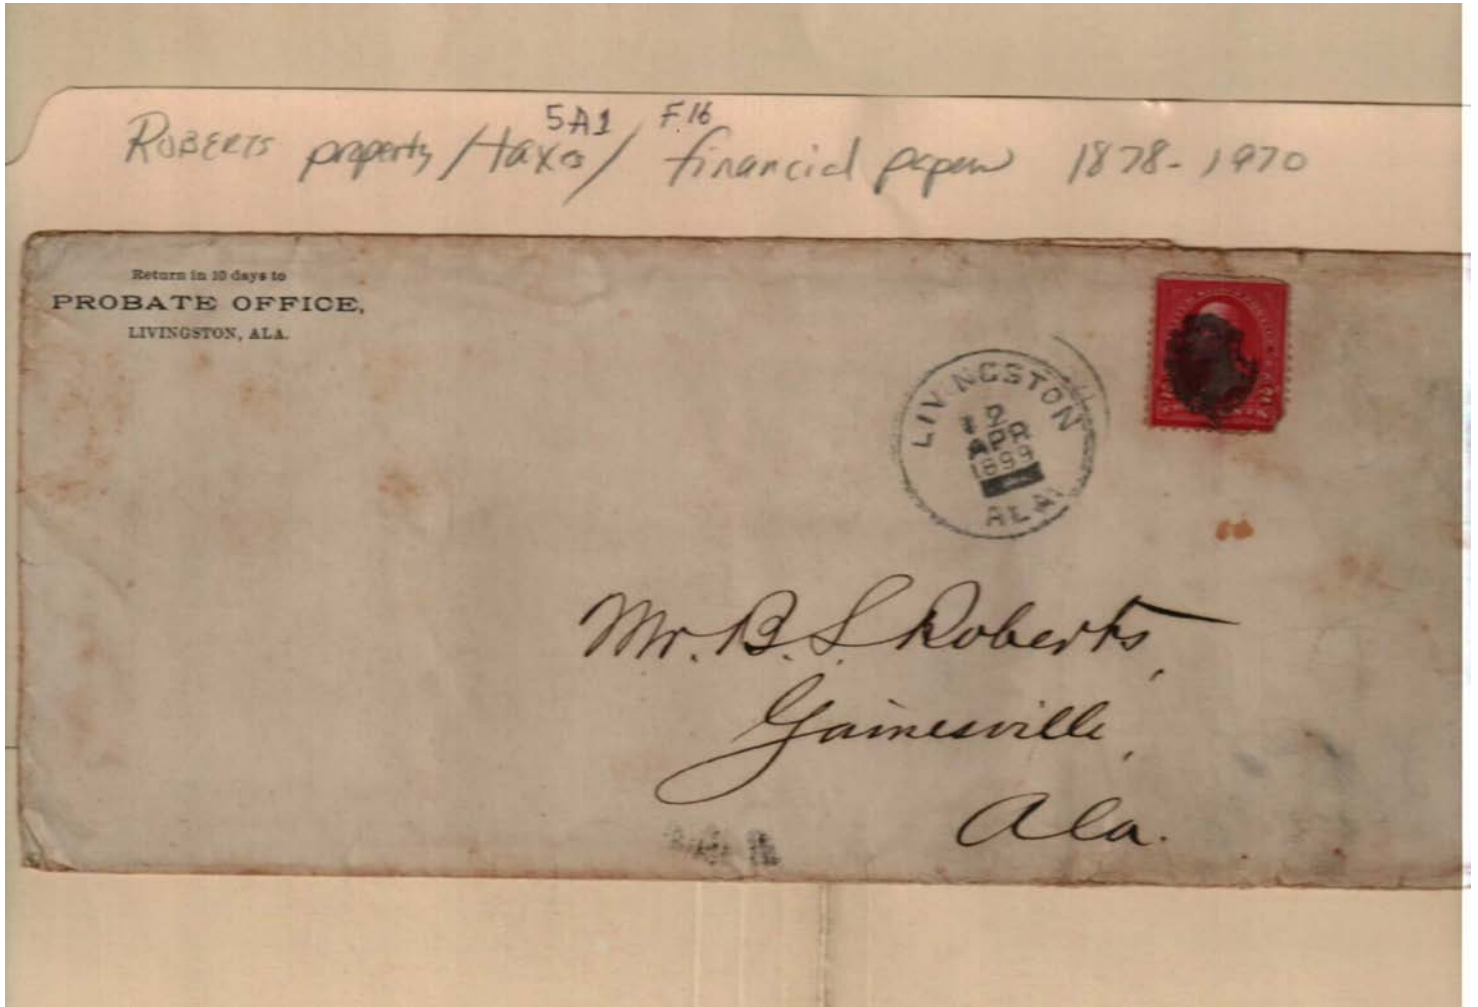 5A1 F.16
ROBERTS property/taxes/ financial papers 1878-1970
Return in 10 days to
PROBATE OFFICE,
LIVINGSTON, ALA.
LIVINGSTON
ALA.
Mr. B. S. Roberts,
Gainesville,
Ala.